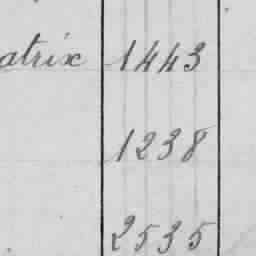 atrix 1443
1238
2535